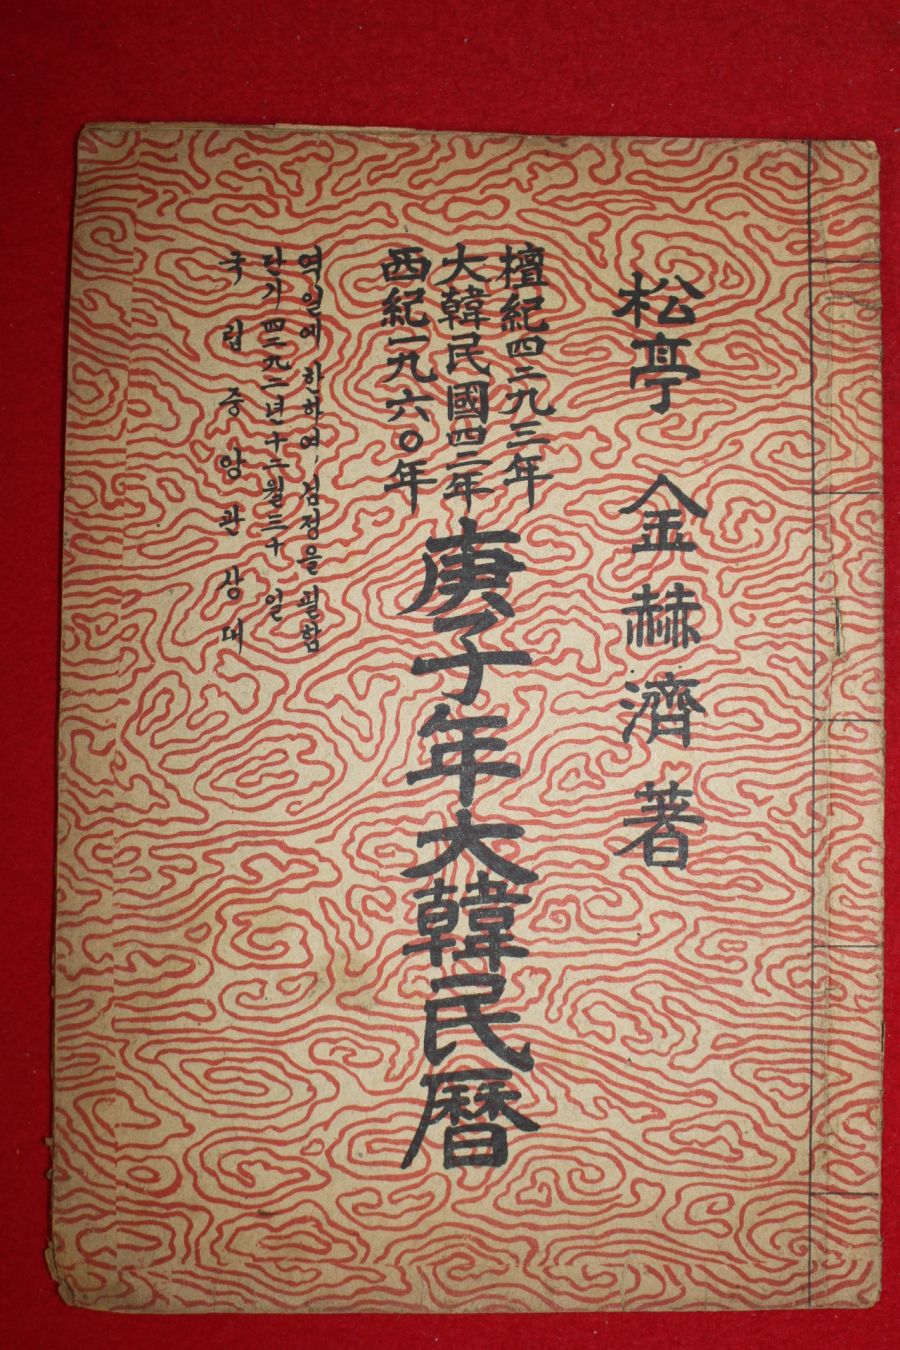 松亭 金赫濟 著
檀紀四二九三年
大韓民國四二年
西紀一九六〇年
庚子年大韓民曆
역일에 한하여 검정을 필함
단기四二九二년十二월三十일
국립중앙관상대